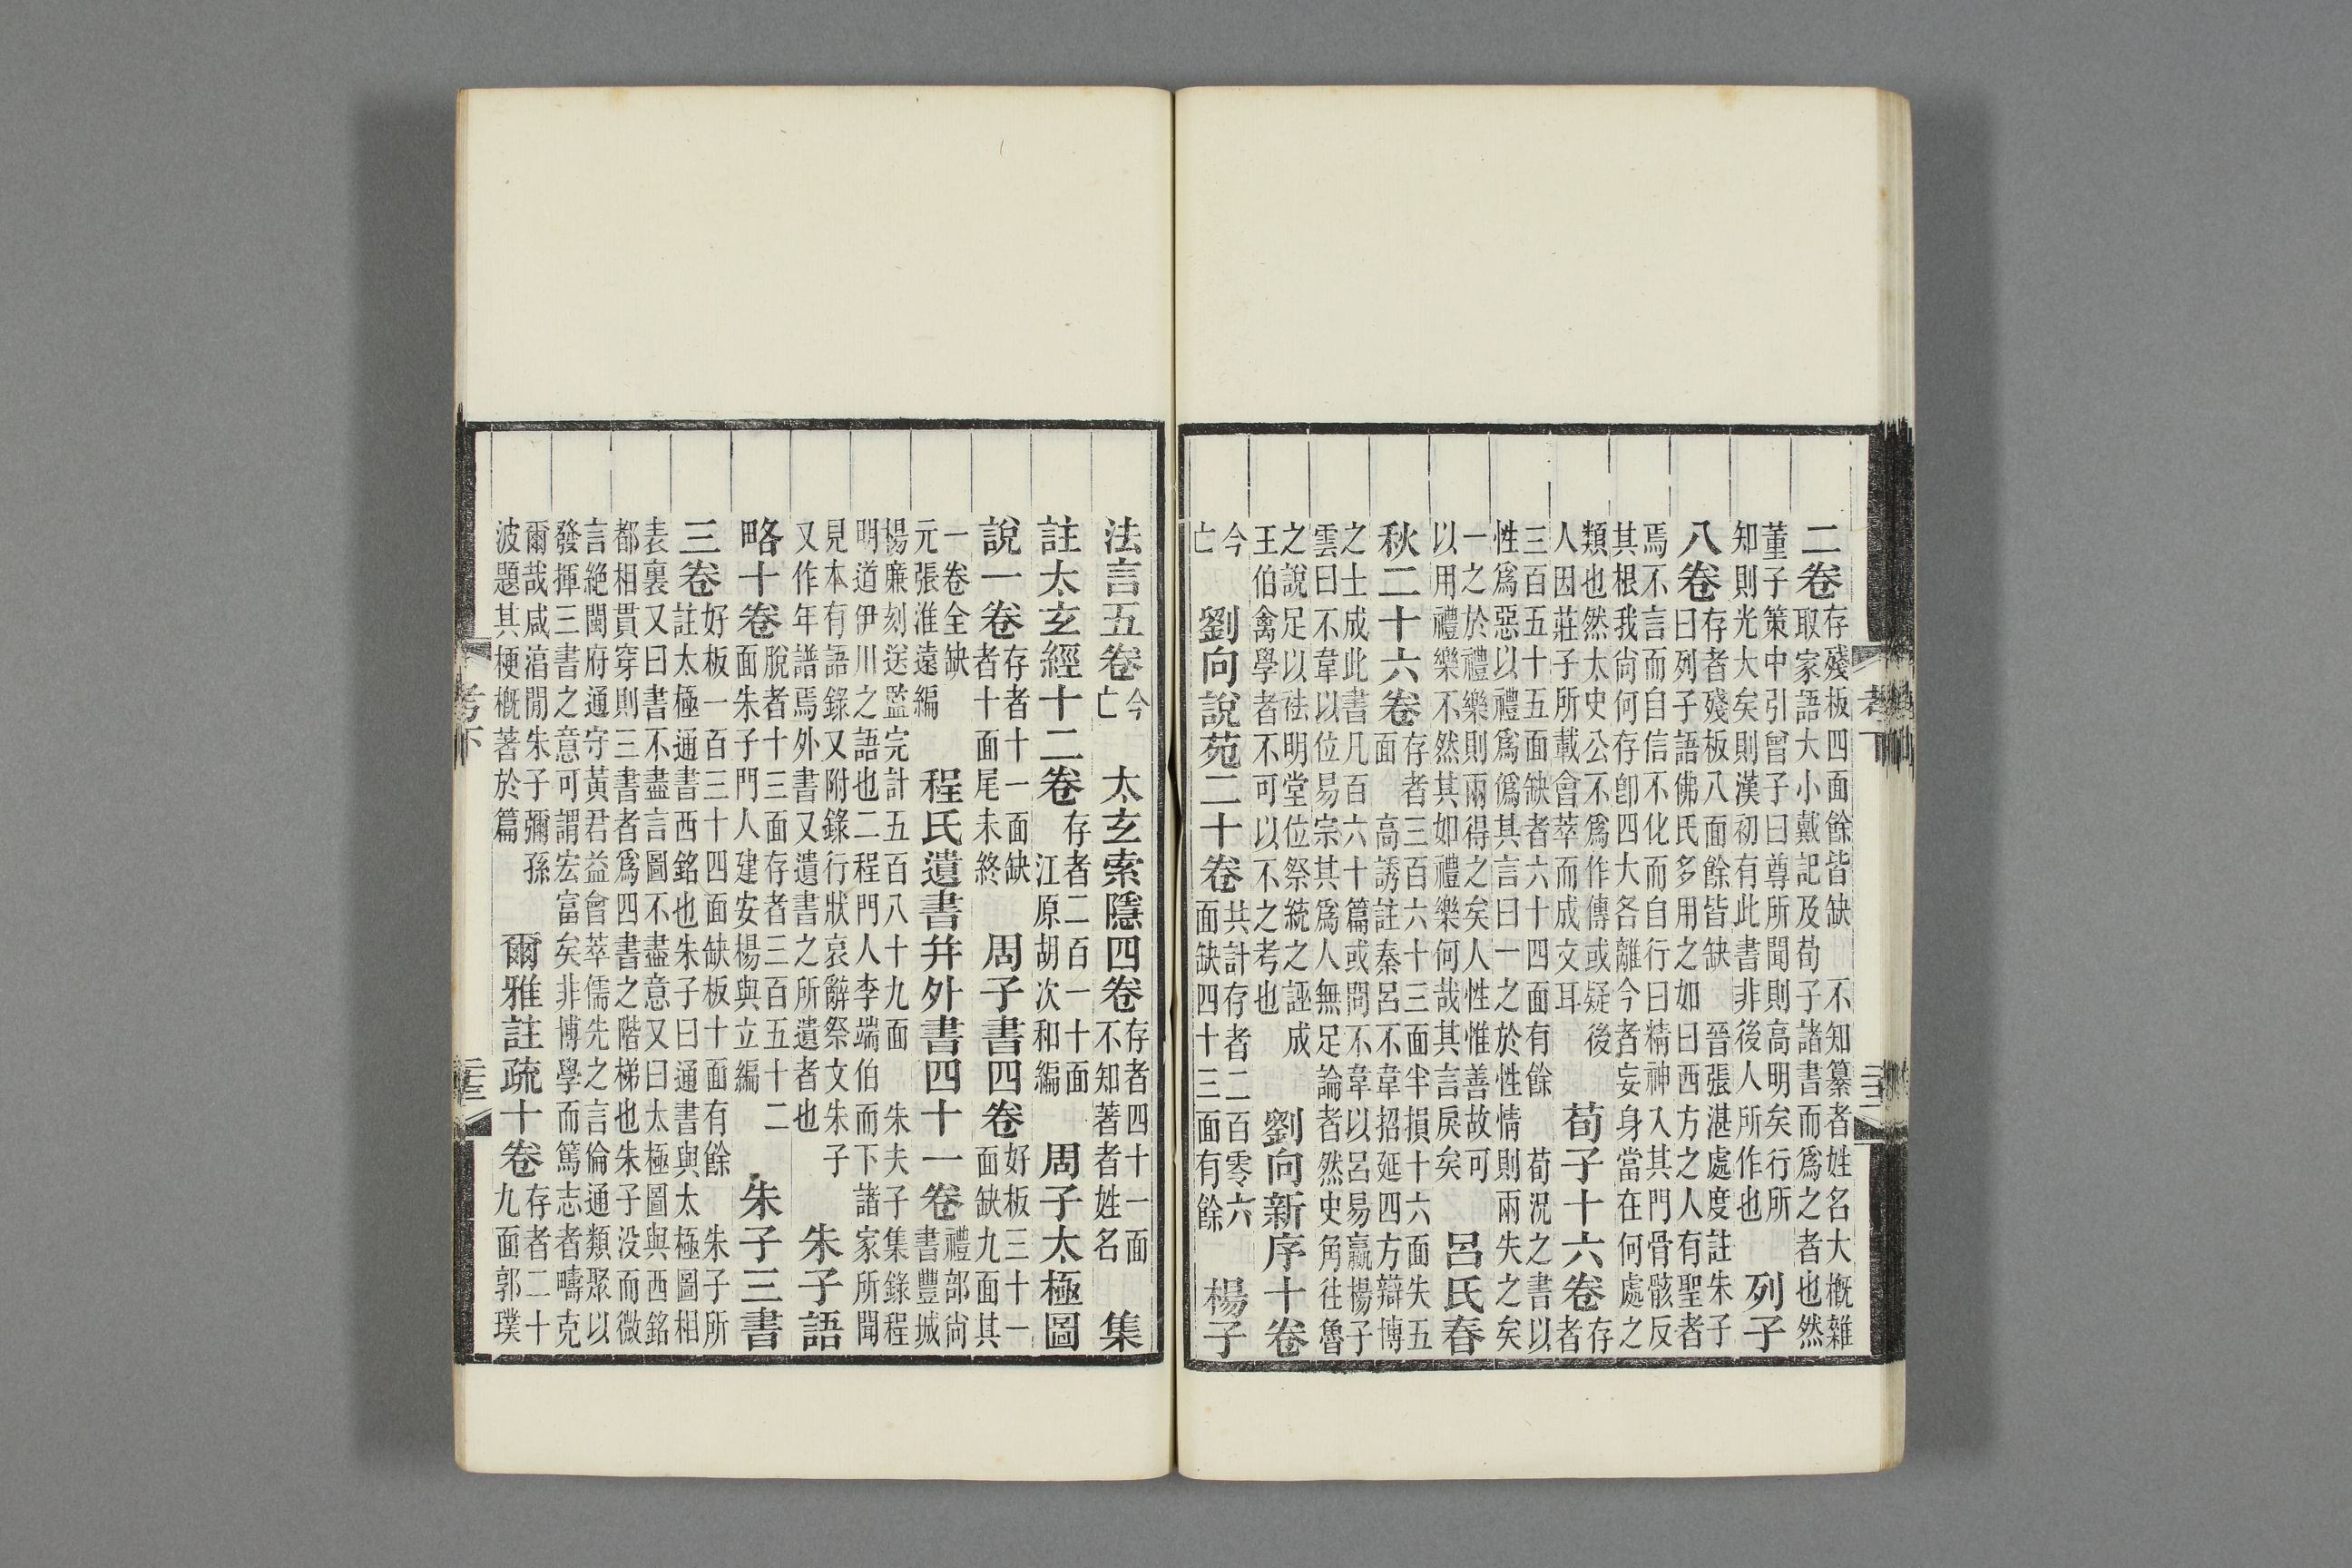 二卷存殘板四面餘皆缺　不知纂者姓名大槪雜
取家語大小戴記及荀子諸書而爲之者也然
董子策中引曾子曰尊所聞則高明矣行所
知則光大矣則漢初有此書非後人所作也　列子
八卷存者殘板八面餘皆缺　晉張湛處度註朱子
曰列子語佛氏多用之如曰西方之人有聖者
焉不言而自信不化而自行曰精神入其門骨骸反
其根我尙何存卽四大各離今者妄身當在何處之
類也然太史公不爲作傳或疑後
人因莊子所載會萃而成文耳　荀子十六卷存者
三百五十五面缺者六十四面有餘　荀況之書以
性爲惡以禮爲僞其言曰一之於性情則兩失之矣
一之於禮樂則兩得之矣人性惟善故可
以用禮樂不然其如禮樂何哉其言戾矣　呂氏春
秋二十六卷存者三百六十三面半損十六面失五
面　高誘註秦呂不韋招延四方辯博
之士成此書凡百六十篇或問不韋以呂易嬴揚子
雲曰不韋以位易宗其爲人無足論者然史角往魯
之說足以祛明堂位祭統之誣成
王伯禽學者不可以不之考也　劉向新序十卷
今亡　劉向說苑二十卷共計存者二百零六
面缺四十三面有餘　楊子
法言五卷今亡　太玄索隱四卷存者四十一面
不知著者姓名　集
註太玄經十二卷存者二百一十面
江原胡次和編　周子太極圖
說一卷存者十一面缺
者十面尾未終　周子書四卷好板三十一
面缺九面其
一卷全缺
元張淮遠編　程氏遺書幷外書四十一卷禮部尙
書豐城
楊廉刻送監完計五百八十九面　朱夫子集錄程
明道伊川之語也二程門人李端伯而下諸家所聞
見本有語錄又附錄行狀哀辭祭文朱子
又作年譜焉外書又遺書之所遺者也　朱子語
略十卷脫者十三面存者三百五十二
面朱子門人建安楊與立編　朱子三書
三卷好板一百三十四面缺板十面有餘　朱子所
註太極通書西銘也朱子曰通書與太極圖相
表裏又曰書不盡言圖不盡意又曰太極圖與西銘
都相貫穿則三書者爲四書之階梯也朱子没而微
言絕閩府通守黃君益會萃儒先之言倫通類聚以
發揮三書之意可謂宏富矣非博學而篤志者疇克
爾哉咸湻閒朱子彌孫
波題其梗槪著於篇　爾雅註疏十卷存者二十
九面郭璞
考下